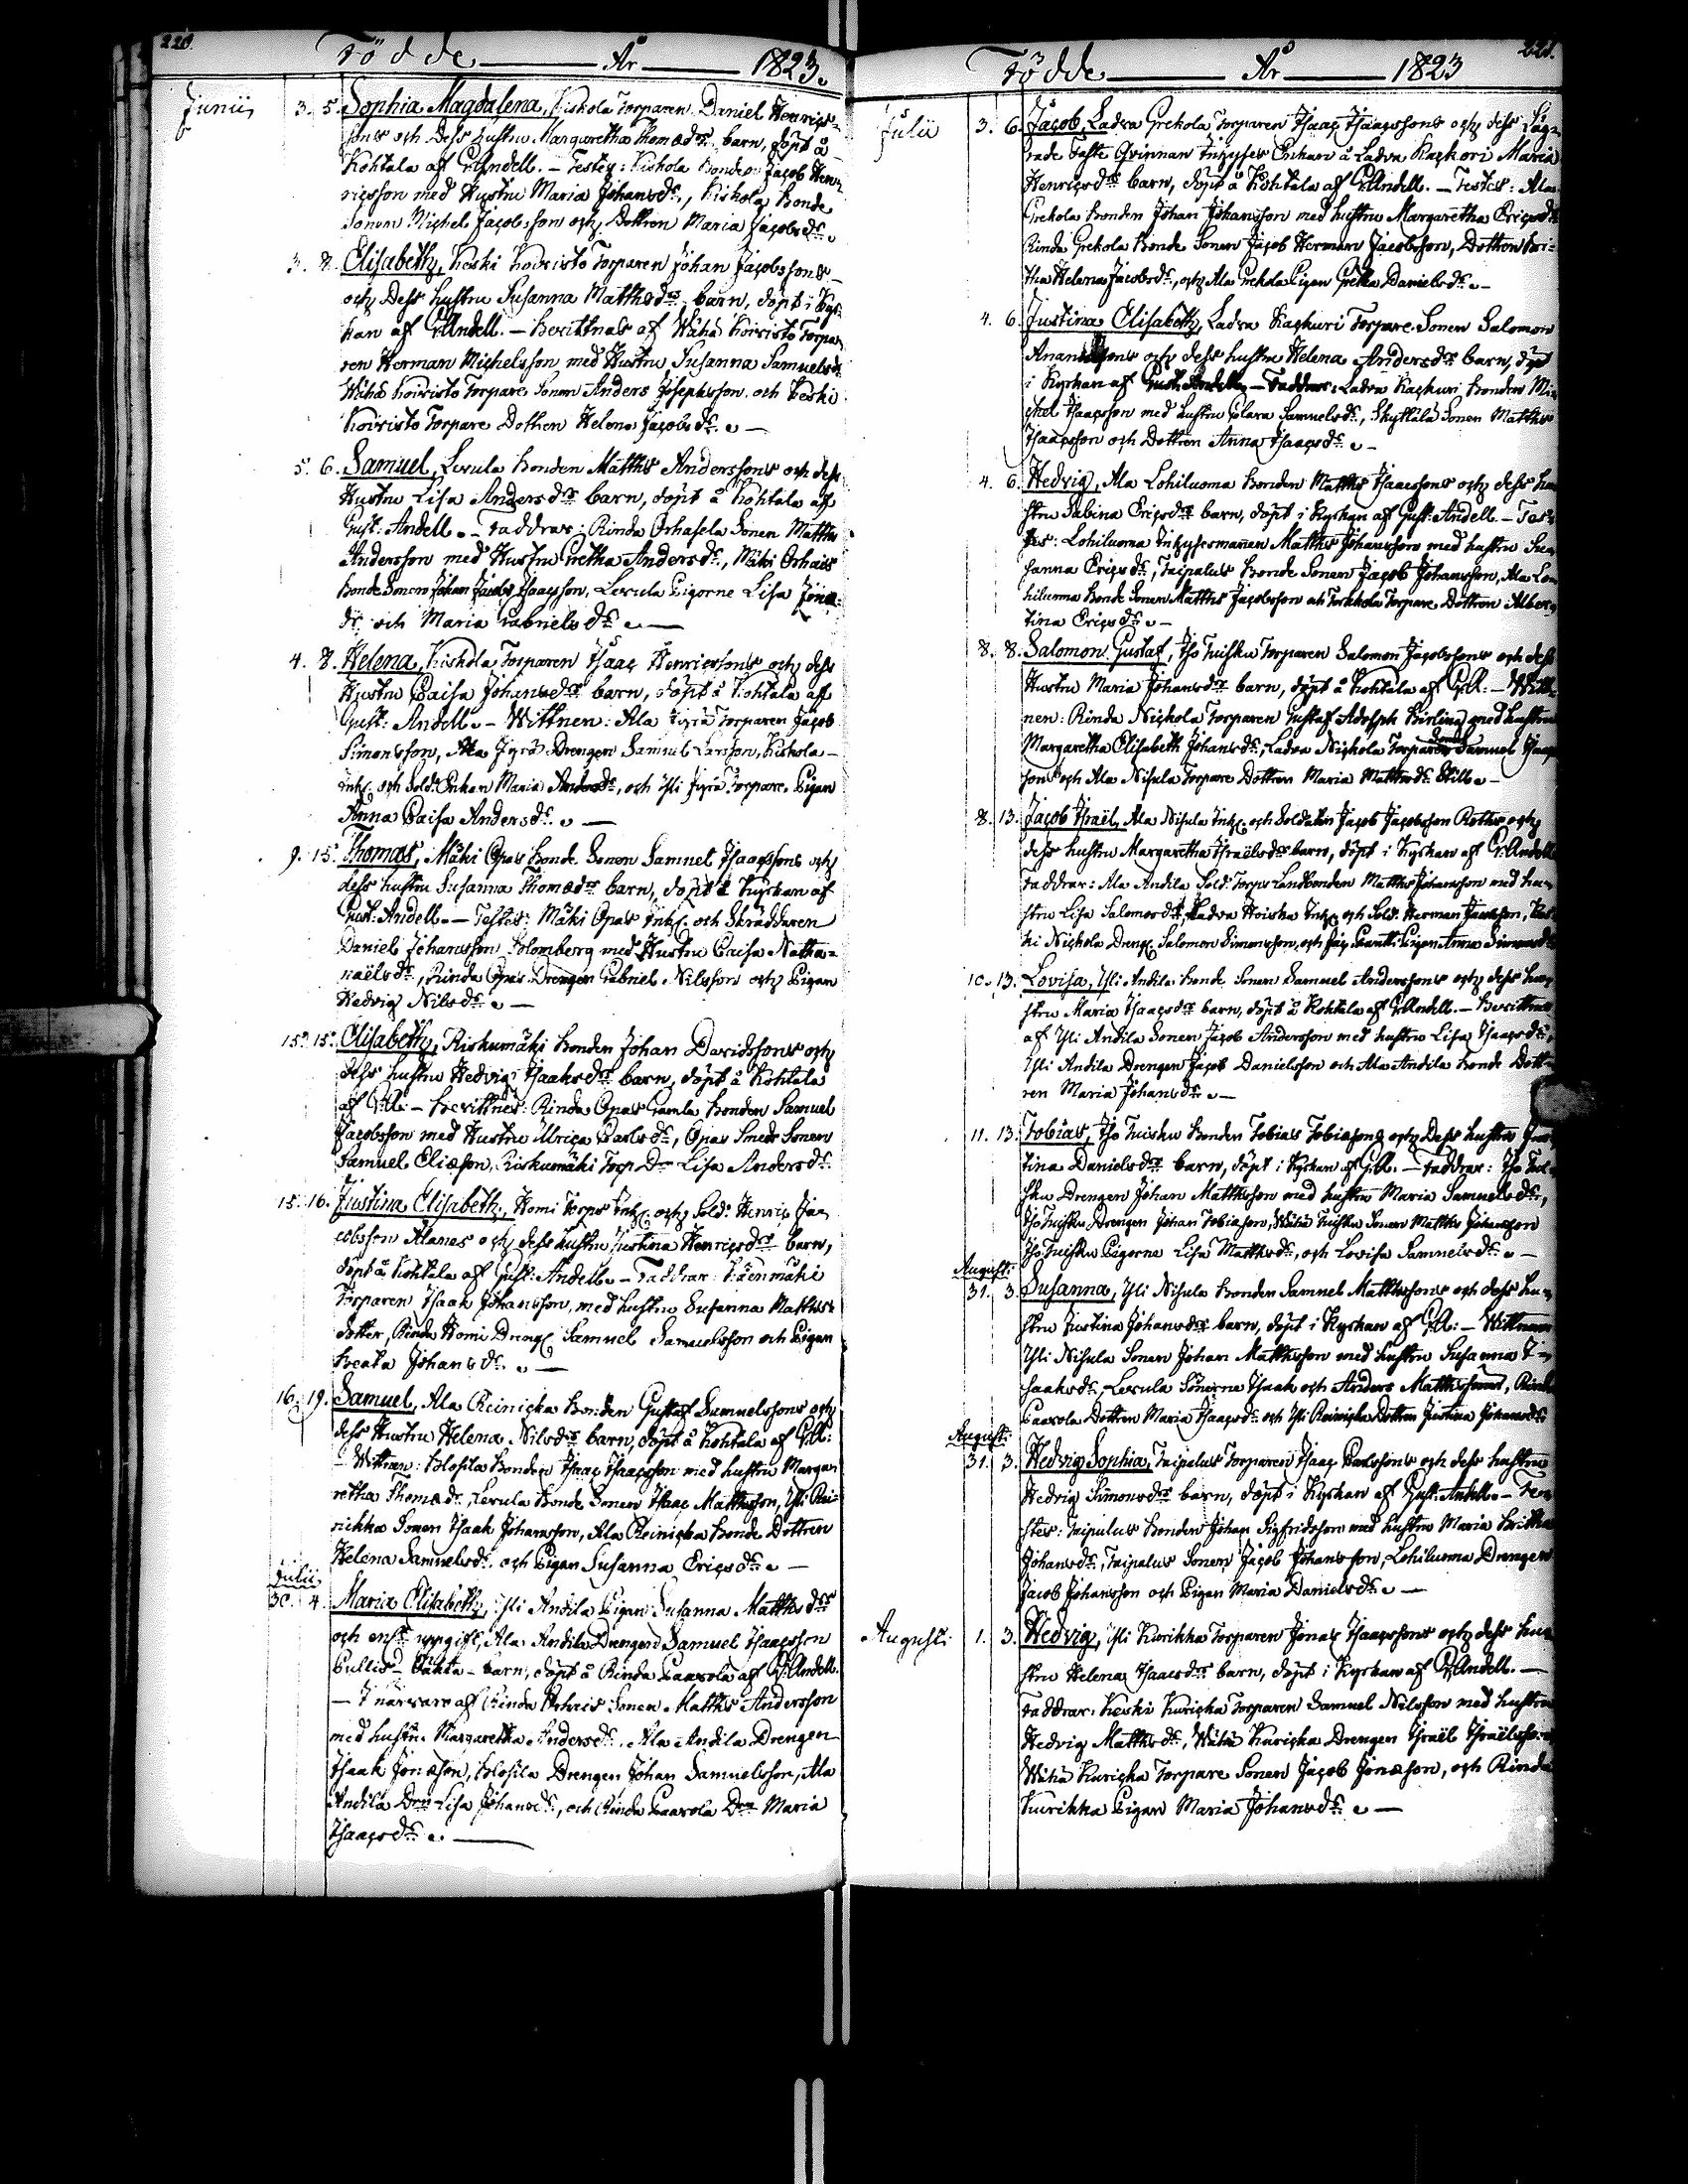 220.
Födde — År — 1823.
Junii 3. 5. Sophia Magdalena, Kiskola Torparen Daniel Henrics-
sons och Dess hustru Margaretha Thomædr barn, döpt å
Kohtala af G. Andell. – Testes: Kiskola Bonden Jacob Hen-
ricsson med Hustru Maria Johansdr, Kiskola Bonde
Sonen Michel Jacobsson och Dottren Maria Jacobsdr.
3. 8. Elisabeth, Keski Koivisto Torparen Johan Jacobssons
och Dess hustru Susanna Matthsdrs barn, döpt i Kyr-
kan af G. Andell. – Bevittnas af Wähä Koivisto Torpa-
ren Herman Michelsson med Hustru Susanna Samuelsdr
Wähä Koivisto Torpare Sonen Anders Josephsson och Keski
Koivisto Torpare Dottren Helena Jacobsdr. –
5. 6. Samuel, Levula Bonden Matths Anderssons och dess
Hustru Lisa Andersdrs barn, döpt å Kohtala af
Gust: Andell. – Faddrar: Rinda Orhasela Sonen Matths
Andersson med Hustru Gretha Andersdr, Mäki Orhais
Bonde Sonen Johan Jacob Isaacsson, Levula Pigorne Lisa Jonæ-
dr och Maria Gabrielsdr. –
4. 8. Helena, Kiskola Torparen Isaac Henricssons och dess
Hustru Caisa Johansdrs barn, döpt å Kohtala af
Gust: Andell. – Wittnen: Ala Jyrä Torparen Jacob
Simonsson, Ala Jyrä Drengen Samuel Larsson, Kiskola
Inh. och Sold. Enkan Maria Andersdr, och Yli Jyrä Torpare Pigan
Anna Caisa Andersdr. –
9. 15. Thomas, Mäki Opas Bonde Sonen Samuel Isaacssons och
dess hustru Susanna Thomædrs barn, döpt i Kyrkan af
Gust: Andell. – Testes: Mäki Opas Inh. och Skräddaren
Daniel Johansson Blomberg med Hustru Caisa Natha-
naëlsdr, Rinda Opas Drengen Gabriel Nilsson och Pigan
Hedvig Nilsdr. –
15. 15. Elisabeth, Riskumäki Bonden Johan Davidssons och
dess hustru Hedvig Isaaksdrs barn, döpt å Kohtala
af G. A. – Bevittnes: Rinda Opas Gamla Bonden Samuel
Jacobsson med Hustru Ulrica Carlsdr, Opas Smeds Sonen
Samuel Eliæson, Riskumäki Torp. Dr Lisa Andersdr.
15. 16. Justina Elisabeth, Homi Torps Inh. och Sold. Henric Ja-
cobsson Alanes och dess hustru Justina Henricsdrs barn,
döpt å Kohtala af Gust: Andell. – Faddrar: Käenmäki
Torparen Isaak Johansson, med hustru Susanna Matths-
dotter, Rinda Homi Dreng. Samuel Samuelsson och Pigan
Beata Johansdr. –
16. 19. Samuel, Ala Reinicka Bonden Gustaf Samuelssons och
dess Hustru Helena Nilsdrs barn, döpt å Kohtala af G. A:
– Wittnen: Klosila Bonden Isaac Isaacsson med hustru Marga-
retha Thomædr, Levula Bonde Sonen Isaac Matthsson, Yli Rei-
nikka Sonen Isaak Johansson, Ala Reinicka Bonde Dottren
Helena Samuelsdr och Pigan Susanna Ericsdr. –
Julii
30. 4. Maria Elisabeth, Yli Andila Pigan Susanna Matthsdrs
och enl. uppgift, Ala Andila Drengen Samuel Isaacsson
barn, döpt å Rinda Paavola af G. Andell.
– I närvaro af Rinda Orhais Sonen Matths Andersson
med hustru Margaretha Andersdr, Ala Andila Drengen
Isaak Jonæson, Klosila Drengen Johan Samuelsson, Ala
Andila Dr Lisa Johansdr, och Rinda Paavola Dr Maria
Isaacsdr. –
221.
Födde — År — 1823
Julii 3. 6. Jacob, Ladva Grekola Torparen Isaac Isaacssons och dess Läg-
rade Faste Qvinnan Inhyses Enkan å Ladva Kackori Maria
Henricsdrs barn, döpt å Kohtala af G. Andell. – Testes: Ala
Grekola Bonden Johan Johansson med hustru Margaretha Ericsdr
Rinda Grekola Bonde Sonen Jacob Herman Jacobsson, Dottren Bri-
tha Helena Jacobsdr, och Ala Grekola Pigan Gretha Danielsdr. –
4. 6. Justina Elisabeth, Ladva Kackuri Torpare Sonen Salomon
Ananiæsons och dess hustru Helena Andersdrs barn, döpt
i Kyrkan af Gust. Andell. – Faddrar: Ladva Kackuri Bonden Mi-
chel Isaacsson med hustru Clara Samuelsdr, Skyttälä Sonen Matths
Isaacsson och Dottren Anna Isaacsdr. –
4. 6. Hedvig, Ala Lohiluoma Bonden Matths Isaacssons och dess hu-
stru Sabina Ericsdrs barn, döpt i Kyrkan af Gust: Andell. – Tes-
tes: Lohiluoma Inhysesmannen Matths Johansson med hustru Su-
sanna Ericsdr, Taipalus Bonde Sonen Jacob Johansson, Ala Lo-
hiluoma Bonde Sonen Matths Jacobsson och Torkkola Torpare Dottren Alber-
tina Ericsdr. –
8. 8. Salomon Gustaf, Iso Tuisku Torparen Salomon Jacobssons och dess
Hustru Maria Johansdrs barn, döpt å Kohtala af G. A. – Witt-
nen: Rinda Nickola Torparen Gustaf Adolph Birling med hustru
Margaretha Elisabeth Johansdr, Ladva Nickola Torpare Sonen Samuel Isaac-
son och Ala Nisula Torpare Dottren Maria Matthsdr Still. –
8. 13. Jacob Israël, Ala Nisula Inh. och Soldaten Jacob Jacobsson Roths och
dess hustru Margaretha Israëlsdrs barn, döpt i Kyrkan af G. Andell
Faddrar: Ala Andila Sold. Torps Landbonden Matths Johansson med hu-
stru Lisa Salomsdr, Ladva Hoiska Inh. och Sold. Herman Jacobsson, Kes-
ki Nickola Dreng. Salomon Simonsson, och Pigan Anna Simonsdr
10. 13. Lovisa, Yli Andila Bonde Sonen Samuel Anderssons och dess hu-
stru Maria Isaacsdrs barn, döpt å Kohtala af G. Andell. – Bevittnas
af Yli Andila Sonen Jacob Andersson med hustru Lisa Isaacsdr,
Yli Andila Drengen Jacob Danielsson och Ala Andila Bonde Dott-
ren Maria Johansdr. –
11. 13. Tobias, Iso Tuisku Bonden Tobias Tobiasons och Dess hustru Jus-
tina Danielsdrs barn, döpt i Kyrkan af G. A. – Faddrar: Iso Tui-
sku Drengen Johan Matthsson med hustru Maria Samuelsdr,
Iso Tuisku Drengen Johan Tobiason, Wähä Tuisku Sonen Matths Johansson
Iso Tuisku Pigorne Lisa Matthsdr, och Lovisa Samuelsdr. –
Augusti
31. 3. Susanna, Yli Nisula Bonden Samuel Matthssons och dess hu-
stru Justina Johansdrs barn, döpt i Kyrkan af G. A: – Wittnen
Yli Nisula Sonen Johan Matthsson med hustru Susanna I-
saaksdr, Levula Sönerne Isaak och Anders Matthssons, Rinda
Paavola Dottren Maria Isaacsdr och Yli Reinicka Dottren Justina Johansdr
Augusti
31. 3. Hedvig Sophia, Taipalus Torparen Isaac Carlssons och dess hustru
Hedvig Simonsdrs barn, döpt i Kyrkan af Gust: Andell. – Te-
stes: Taipalus Bonden Johan Sigfridsson med hustru Maria Britha
Johansdr, Taipalus Sonen Jacob Johansson, Lohiluoma Drengen
Jacob Johansson och Pigan Maria Danielsdr. –
Augusti 1. 3. Hedvig, Yli Kurikka Torparen Jonas Isaacssons och dess hu-
stru Helena Isaacsdrs barn, döpt i Kyrkan af G. Andell. –
Faddrar: Keski Kuricka Torparen Samuel Nilsson med hustru
Hedvig Matthsdr, Wähä Kuricka Drengen Israël Israëlsson
Wähä Kuricka Torpare Sonen Jacob Jonæson, och Rinda
Kurikka Pigan Maria Johansdr. –